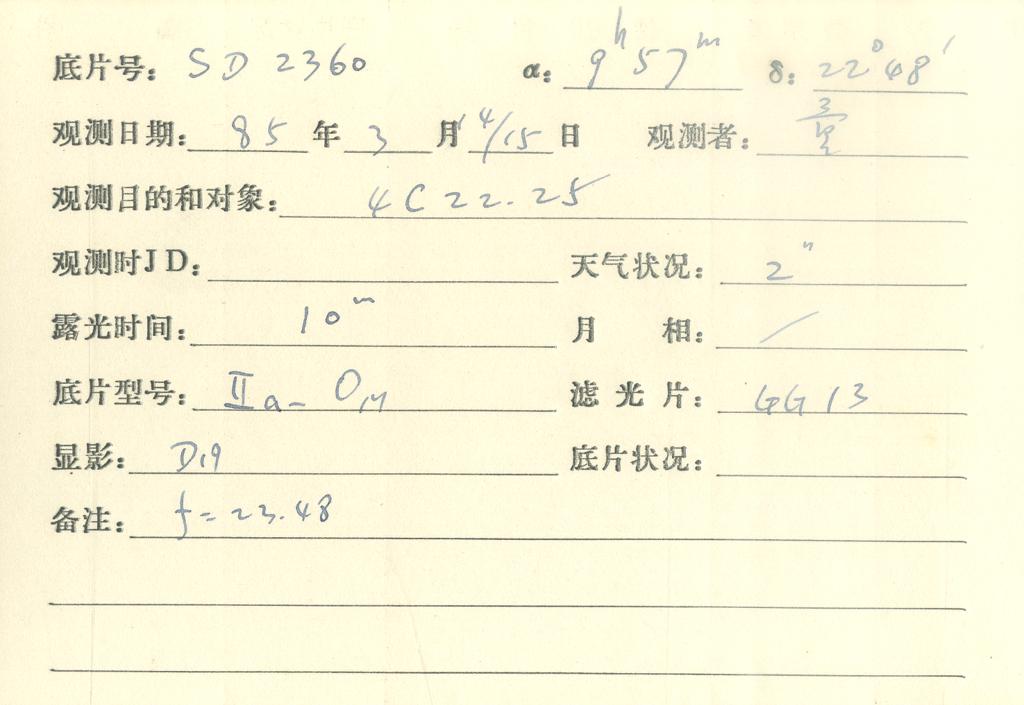 底片号: SD 2360 α: 9h57m δ: 22°48′
观测日期: 85 年 3 月 14/15 日 观测者:
观测目的和对象: 4C 22.25
观测时JD: 天气状况: 2"
露光时间: 10m 月 相: /
底片型号: IIa-O 滤光片: GG13
显影: D19 底片状况:
备注: f=23.48